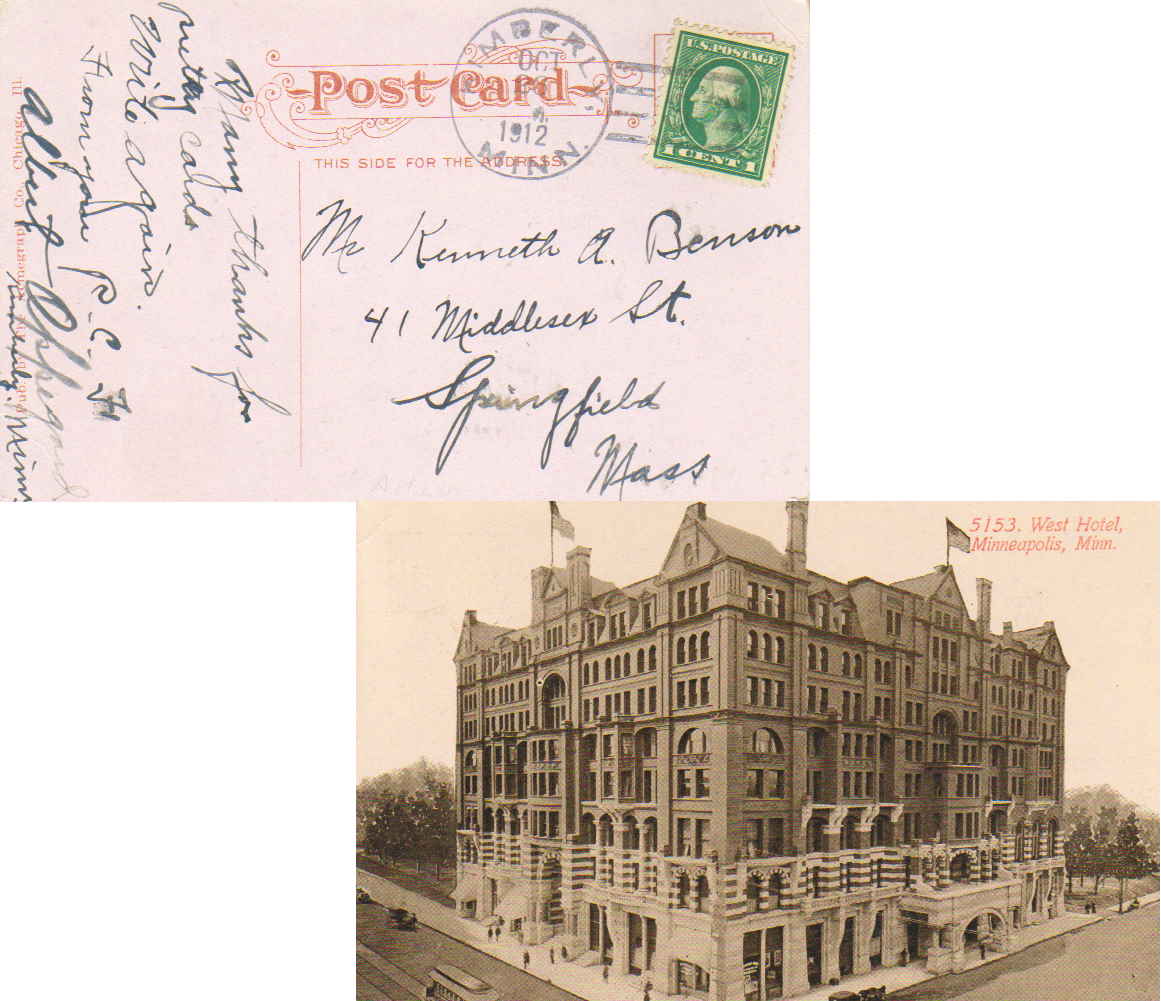 Many thanks for
pretty cards
Write again.
From your P.C. Fr
Albert Oppegard
Kimberly, Minn
Co., Chicago, Ill.
Post Card
THIS SIDE FOR THE ADDRESS.
KIMBERLY,
OCT
1912
MINN.
U.S. POSTAGE
1 CENT 1
Mr Kenneth A. Benson
41 Middlesex St.
Springfield
Mass
5153. West Hotel,
Minneapolis, Minn.